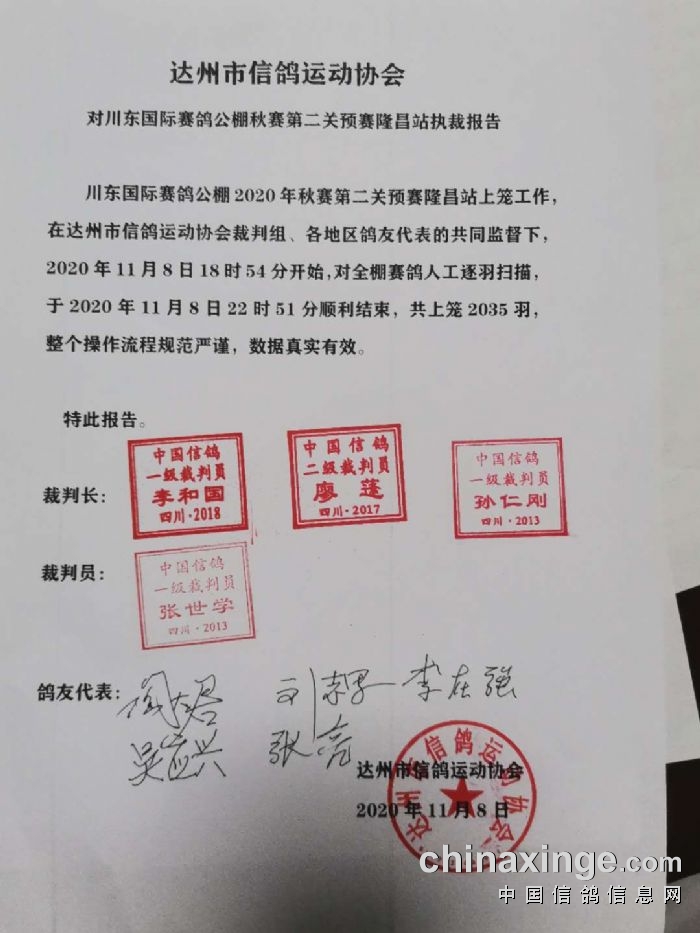 达州市信鸽运动协会
对川东国际赛鸽公棚秋赛第二关预赛隆昌站执裁报告
川东国际赛鸽公棚2020年秋赛第二关预赛隆昌站上笼工作，
在达州市信鸽运动协会裁判组、各地区鸽友代表的共同监督下，
2020年11月8日18时54分开始，对全棚赛鸽人工逐羽扫描，
于2020年11月8日22时51分顺利结束，共上笼2035羽，
整个操作流程规范严谨，数据真实有效。
特此报告。
裁判长：
中国信鸽
一级裁判员
李和国
四川·2018
中国信鸽
二级裁判员
廖蓬
四川·2017
中国信鸽
一级裁判员
孙仁刚
四川·2013
裁判员：
中国信鸽
一级裁判员
张世学
四川·2013
鸽友代表：
李在强
吴应兴 张亮
达州市信鸽运动协会
达州市信鸽运动协会
2020年11月8日
chinaxinge.com
中国信鸽信息网